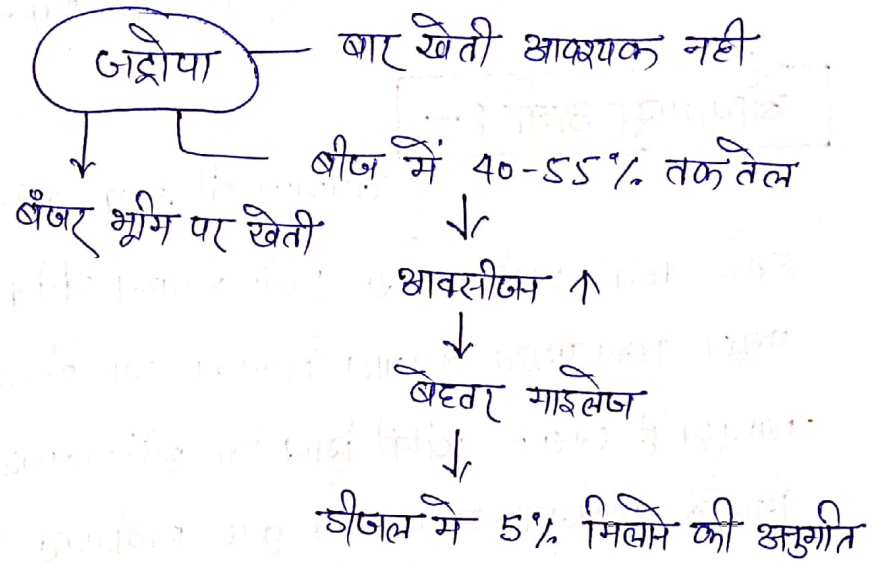 जट्रोपा
बार खेती आवश्यक नही
बीज में 40-55% तक तेल
बँजर भूमि पर खेती
आक्सीजन ↑
बेहतर माइलेज
डीजल मे 5% मिलाने की अनुमति